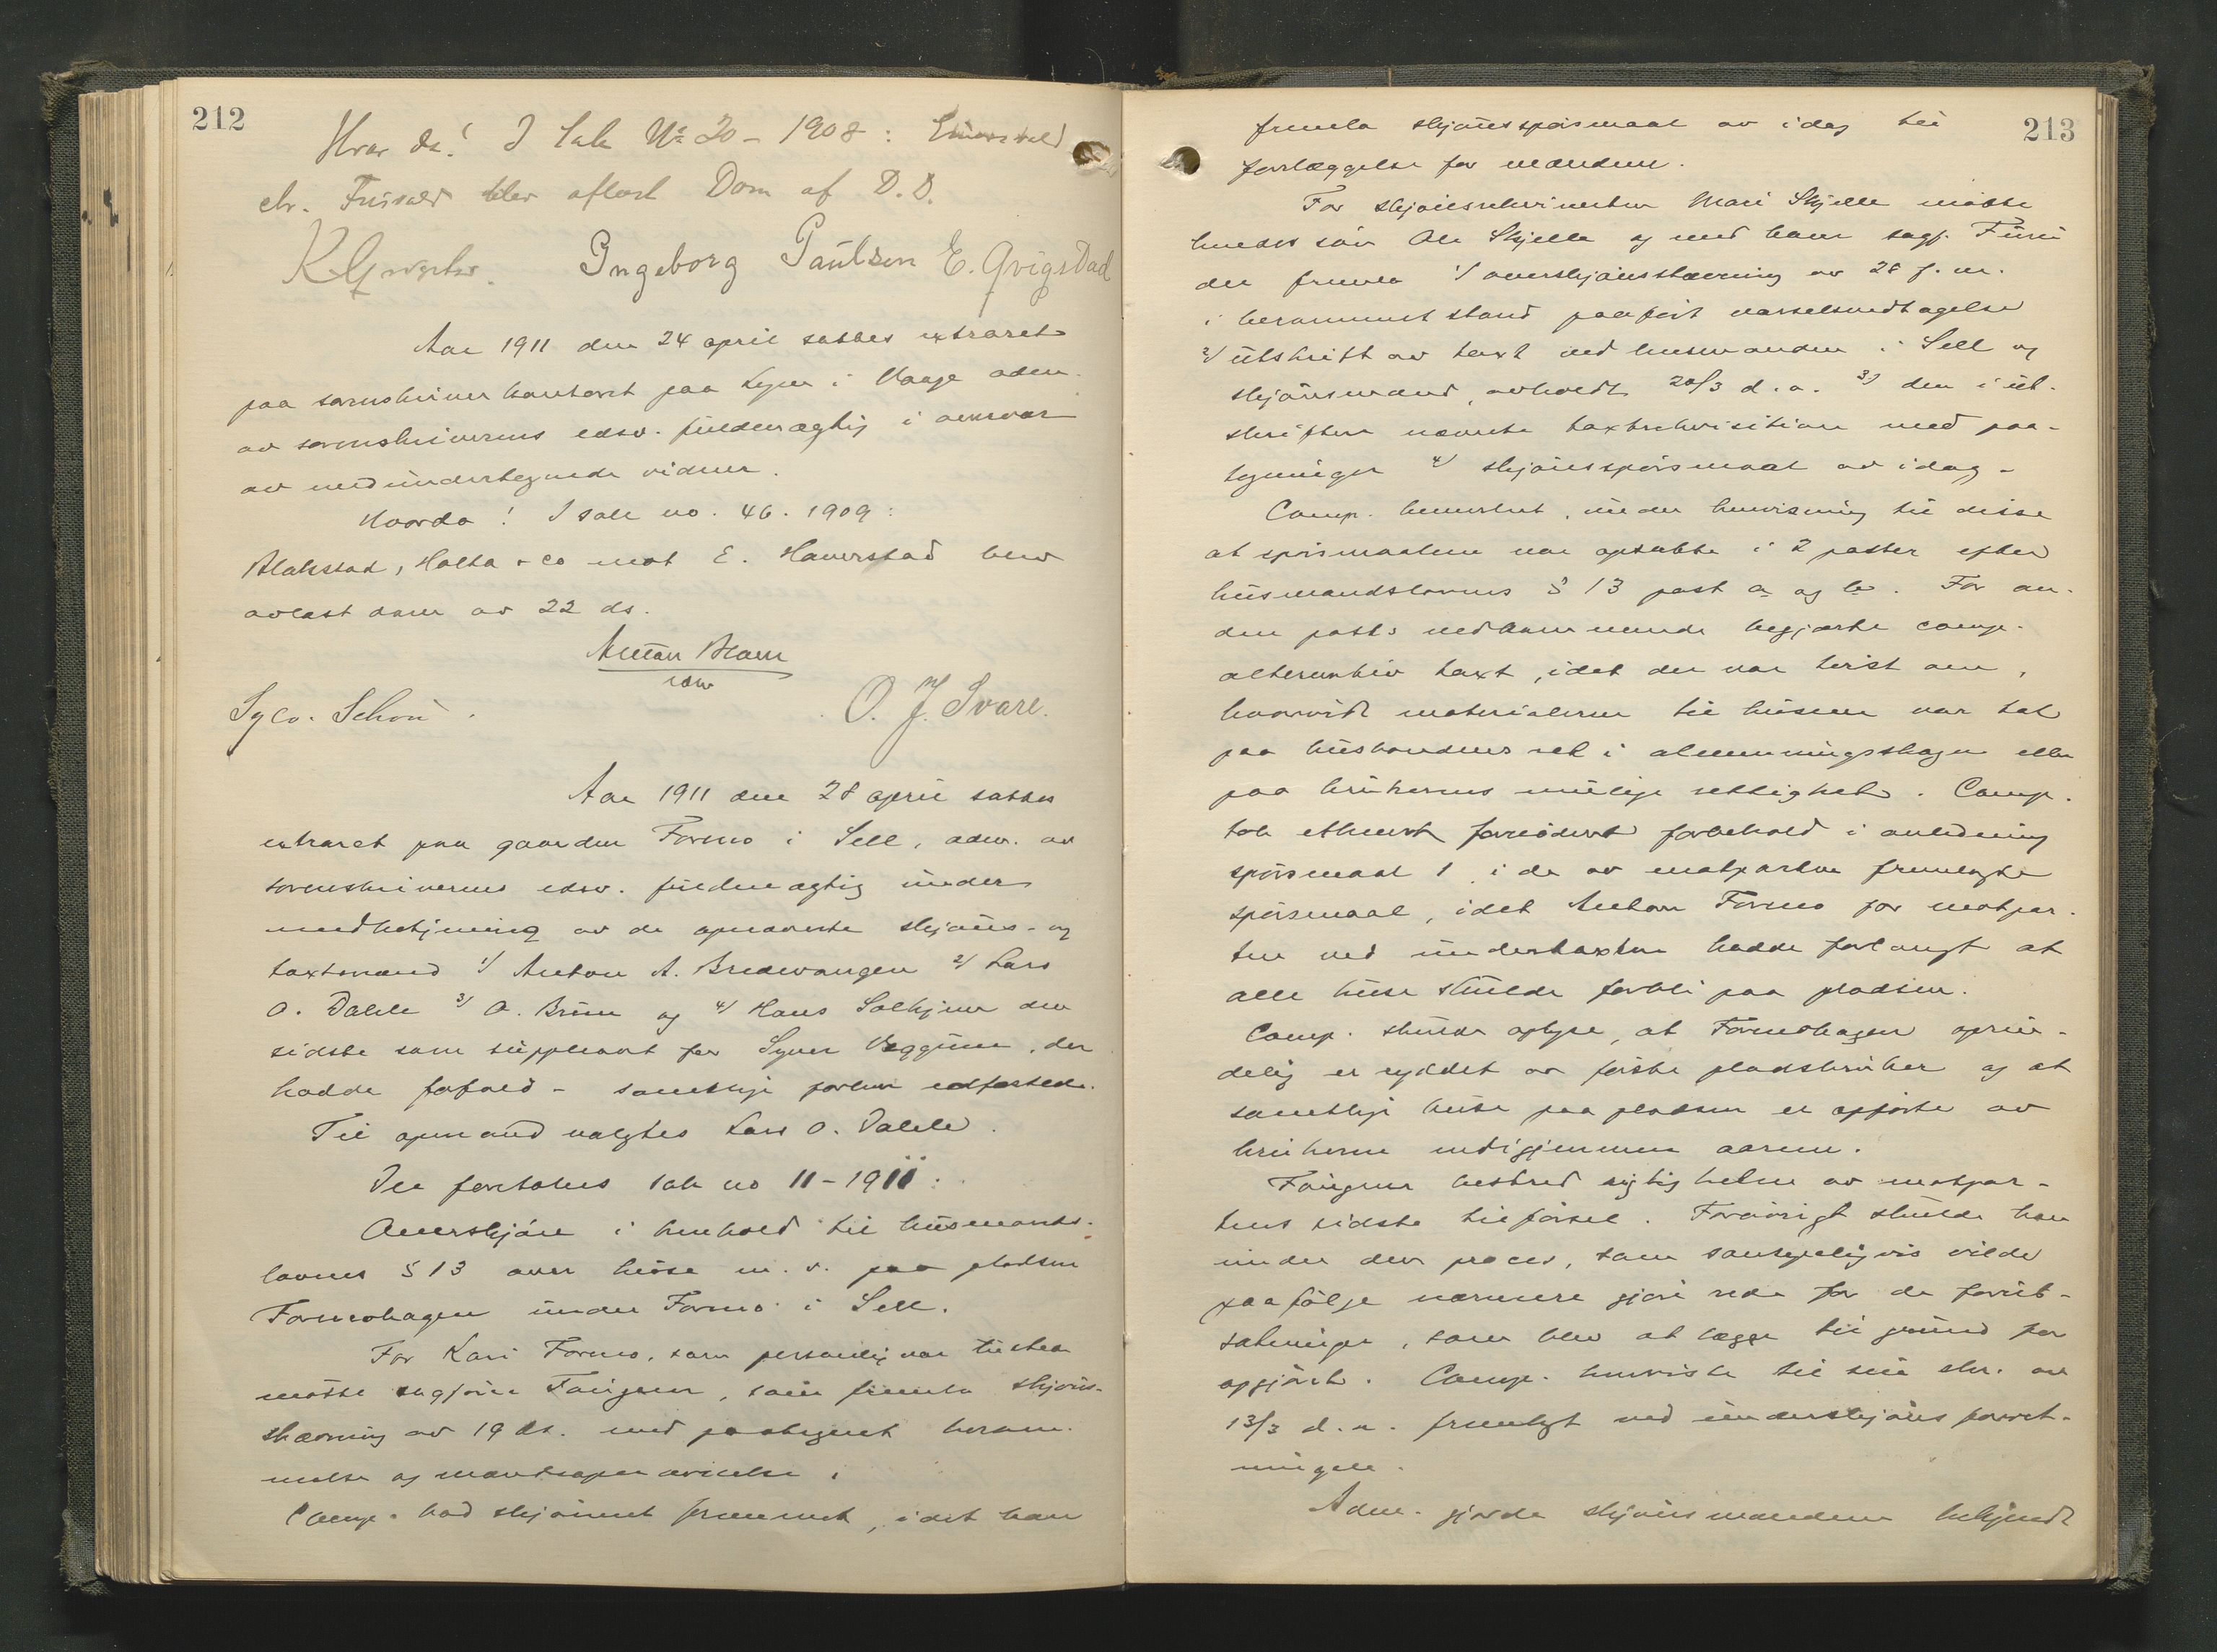 212
Hvor da! I Sak No 20 - 1908:
ctr. blev aflæst Dom af D.D.
Ingeborg Paulsen E. Qvigstad
Aar 1911 den 24 april sattes extraret
paa sorenskriverkontoret paa i Vaage adm.
av sorenskriverens edsv. fuldmægtig i nærvær
av medundertegnede vidner.
Hvorda! I sak no. 46. 1909:
Blakstad, Holta & co mot E. Haverstad blev
avlæst dom av 22 ds.
Anton Blom
edsv
O. J. Svare.
Aar 1911 den 28 april sattes
extraret paa gaarden Formo i Sell, adm. av
sorenskriverens edsv. fuldmægtig under
medbetjening av de opnævnte skjøns- og
taxtmænd 1/ Anton A. Bredevangen 2/ Lars
O. Dahle 3/ O. Bruun og 4/ Hans Solhjem den
sidste som suppleant for Syver Veggum, der
hadde forfald - samtlige forhen edfæstede.
Til opmand valgtes Lars O. Dahle.
Der foretokes sak no 11-1911:
Overskjøn i henhold til husmands-
lovens § 13 over huse m. v. paa pladsen
Formohagen under Formo i Sell.
For Kari Formo, som personlig var tilstede
møtte sagfører Faugner, som fremla skjøns-
stævning av 19 ds. med paategnet beram-
melse og mandsopnævnelse.
Comp. bad skjønnet fremmet, idet han
213
fremla skjønsspørsmaal av idag til
forelæggelse for mændene.
For skjønsrekvirenten Mari Skjelle møtte
hendes søn Ole Skjelle og med ham sagf. Furu
der fremla 1/ overskjønsstævning av 28 f. m.
i berammet stand paaført varselsvedtagelse
2/ utskrift av taxt ved husmanden i Sell og
skjønsmænd, avholdt 20/3 d. a. 3/ den i ut-
skriften nævnte taxtrekvisition med paa-
tegninger 4/ skjønsspørsmaal av idag -
Comp. bemerket, under henvisning til disse
at spørsmaalene var opsatte i 2 poster efter
husmandslovens § 13 post a og b. For an-
den posts vedkommende begjærte comp.
alternativ taxt, idet der var tvist om,
hvorvidt materialerne til husene var tat
paa husbondens ret i almenningsskogen eller
paa brukernes mulige rettighet. Comp.
tok ethvert fornødent forbehold i anledning
spørsmaal 1 i de av motparten fremlagte
spørsmaal, idet Anton Formo for motpar-
ten ved undertaxten hadde forlangt at
alle huse skulde forbli paa pladsen.
Comp. skulde oplyse, at Formohagen oprin-
delig er ryddet av første pladsbruker og at
samtlige huse paa pladsen er opførte av
brukerne indigjennem aarene.
Faugner bestred rigtigheten av motpar-
tens sidste tilførsel. Forøvrigt skulde han
under den proces, som sansynligvis vilde
paafølge nærmere gjøre rede for de forut-
sætninger, som blev at lægge til grund for
opgjøret. Comp. henviste til sin skr. av
13/3 d. a. fremlagt ved underskjønsforret-
ningen.
Adm. gjorde skjønsmændene bekjendt